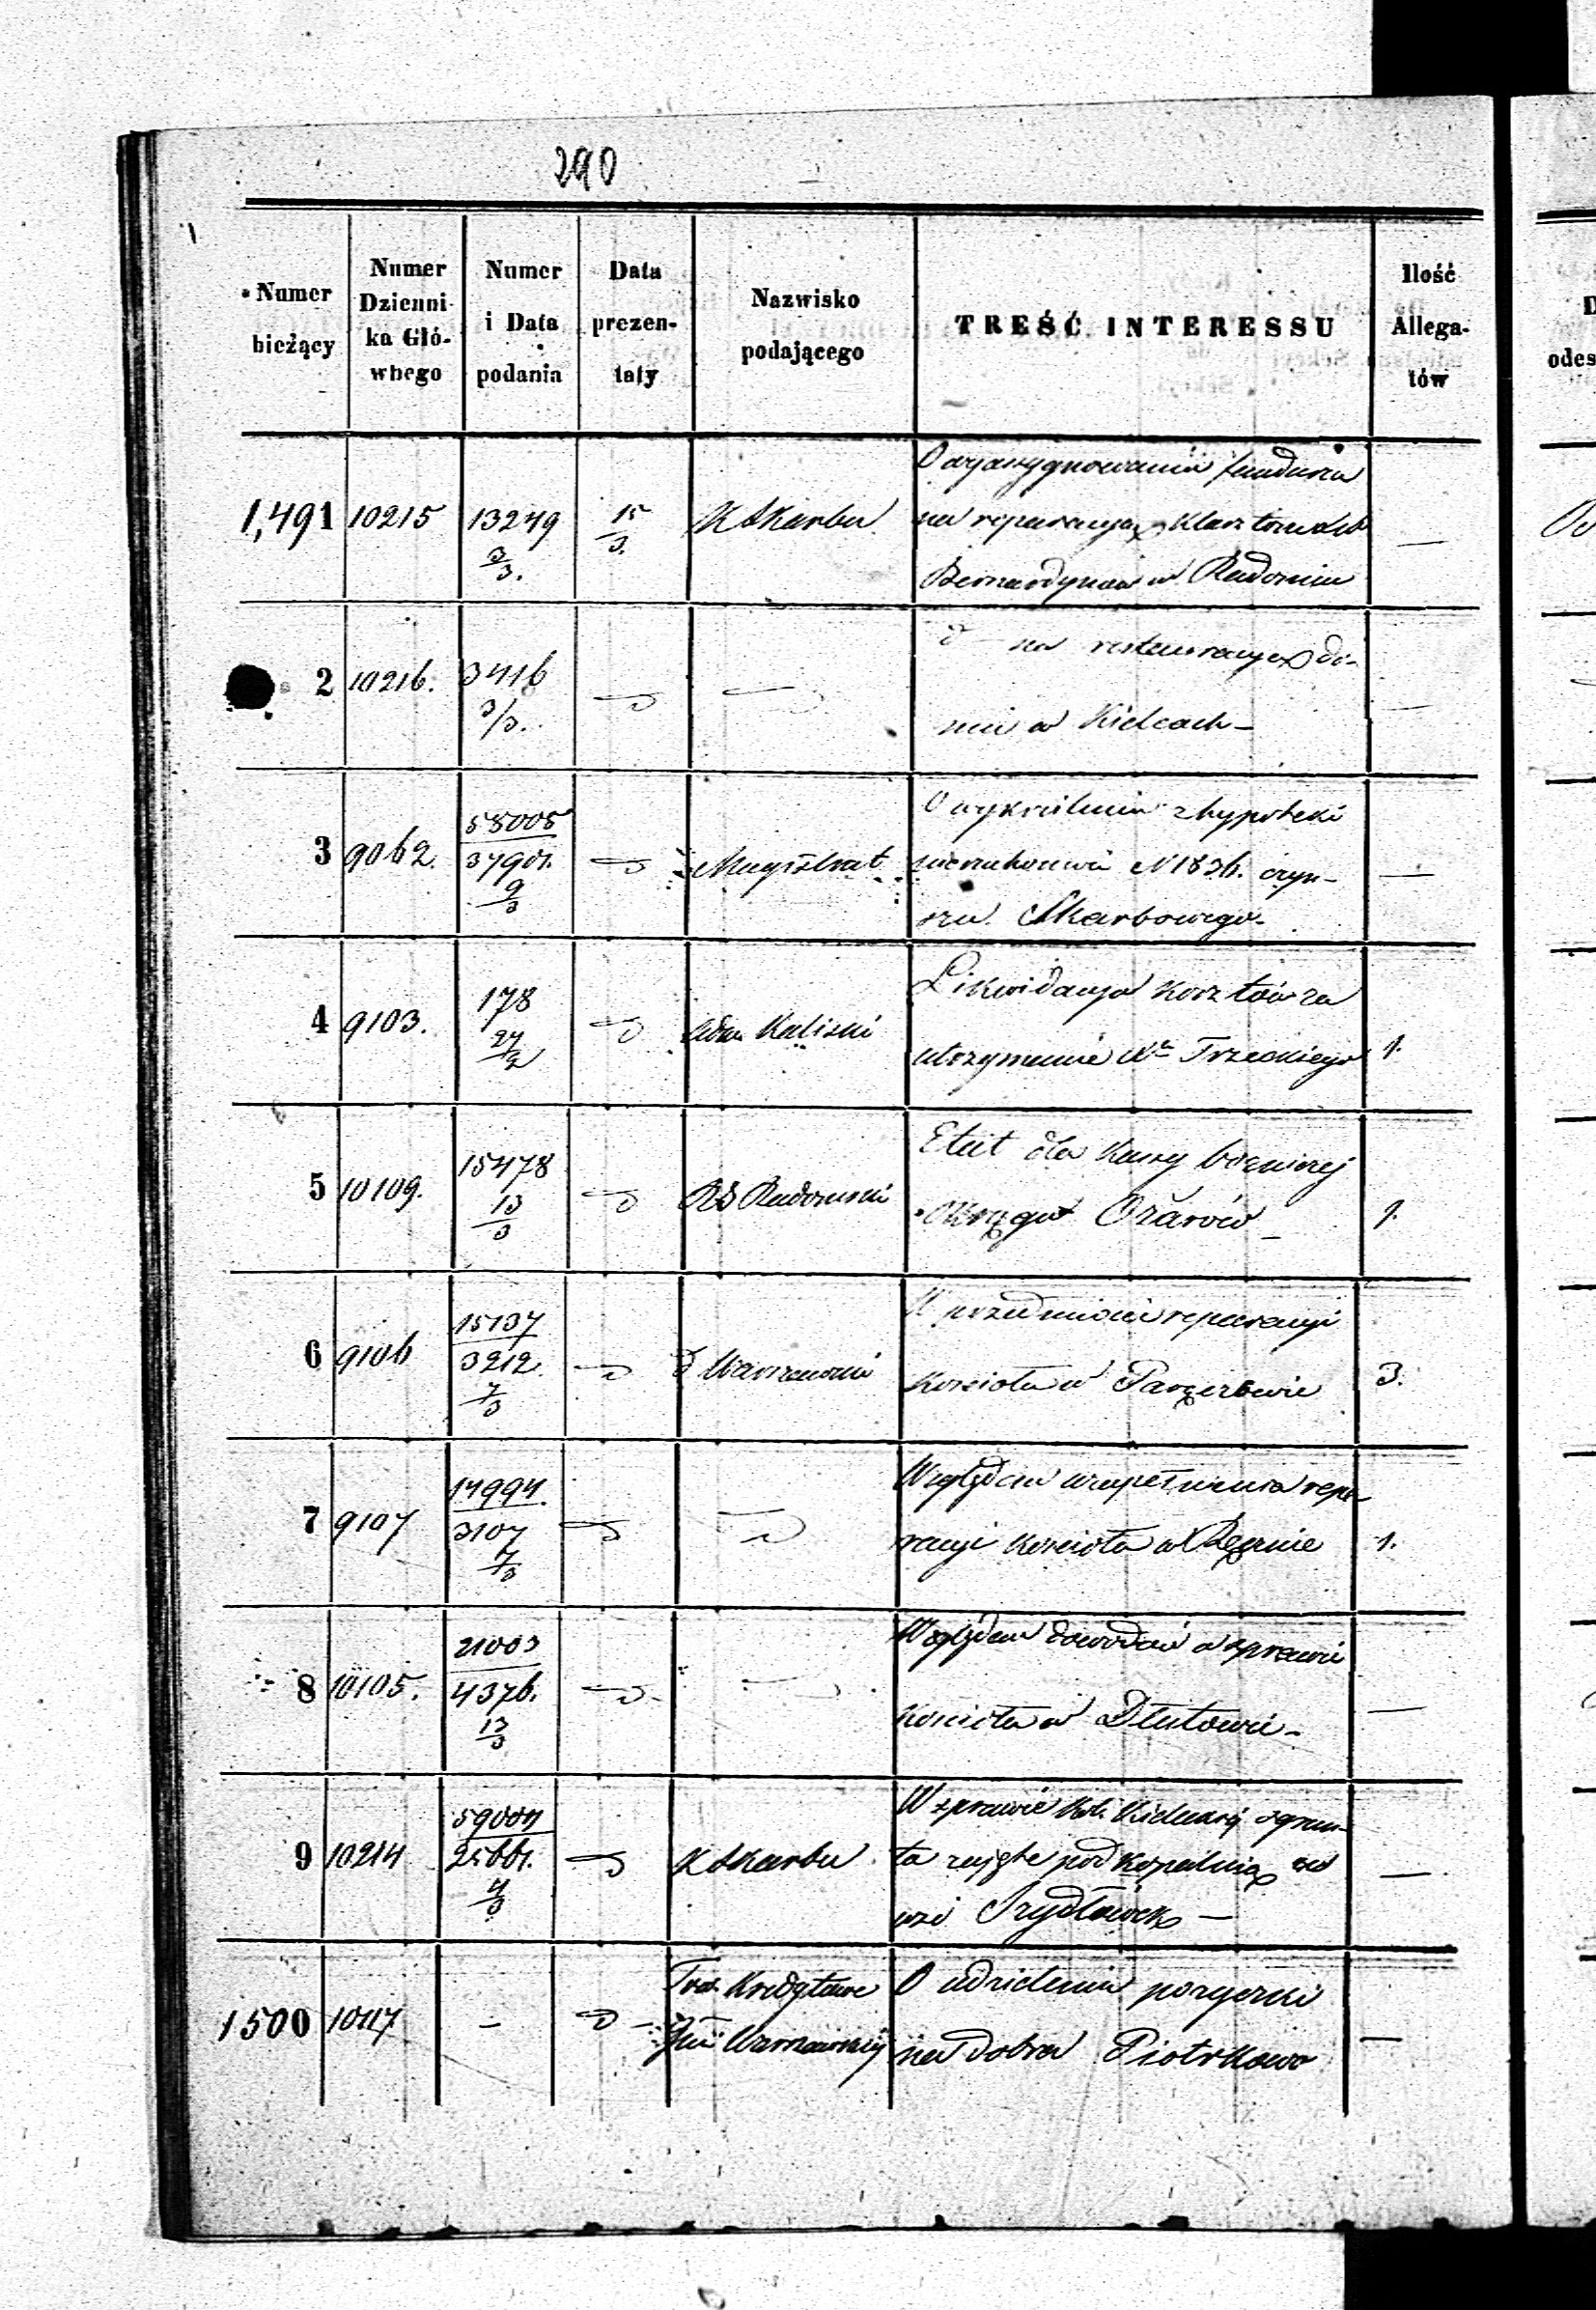 290
Numer bieżący
Numer Dzienni- ka Głó- wnego
Numer i Data podania
Data prezen- taty
Nazwisko podającego
TREŚĆ INTERESSU
Ilość Allega- tów
1,491 10215 13249 3/3. 15/3. K Skarbu
O wyasygnowanie funduszu
na reparacyą Klasztoru
Bernardynów w Radomiu
—
2 10216. 3416 3/3.
na restauracyą do-
mu w Kielcach –
—
3 9062. 58005 37901. 9/3 Magistrat
O wykreślenie z hypoteki
nieruchomości N 1836. czyn-
szu Skarbowego.
—
4 9103. 178 27/2 Adam Kaliski
Likwidacya kosztów za
utrzymanie Trzeckiego
1.
5 10109. 15478 13/3 RG Radomski
Etat dla Kassy bożniczej
Okręgu Ożarów –
1.
6 9106 15137 3212. 7/3 d Warszawski
W przedmiocie reparacyi
Kościoła w Parzęczewie
3.
7 9107 14994. 3107 7/3
Względem uzupełnienia repa-
racyi Kościoła w
1.
8 10105. 21003 4376. 13/3
Względem dowodów w sprawie
Kościoła w Dłutowie –
—
9 10214 59004 25661. 4/3 K Skarbu
W sprawie Kol. Kieleckiej o grun-
ta zajęte pod Kopalnią we
wsi Szydłówek –
—
1500 10117 –
Tow. Kredytowe
Gub Warszawskiej
O udzielenie pożyczki
na dobra Piotrkowo
—